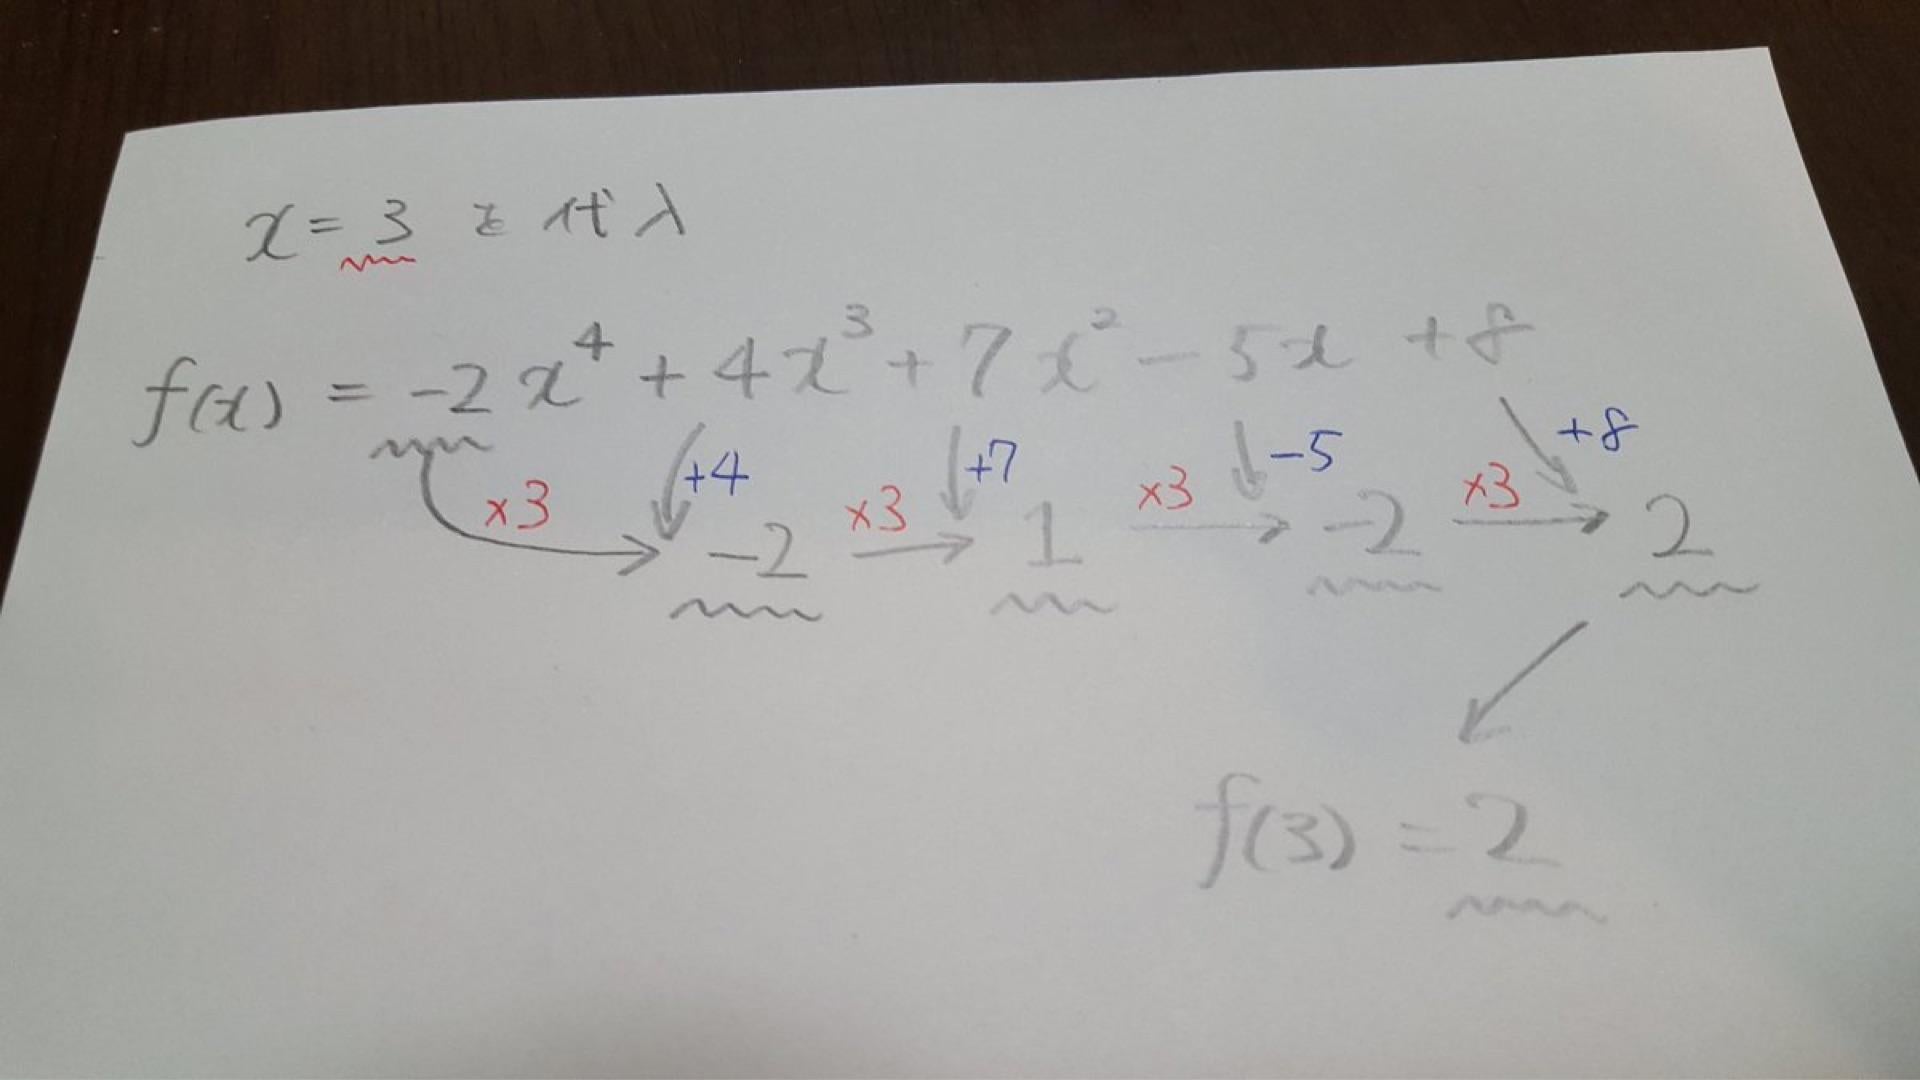 x=3 を代入
f(x) = -2x⁴+4x³+7x²-5x+8
×3 +4 ×3 +7 ×3 -5 ×3 +8
-2 1 -2 2
f(3)=2